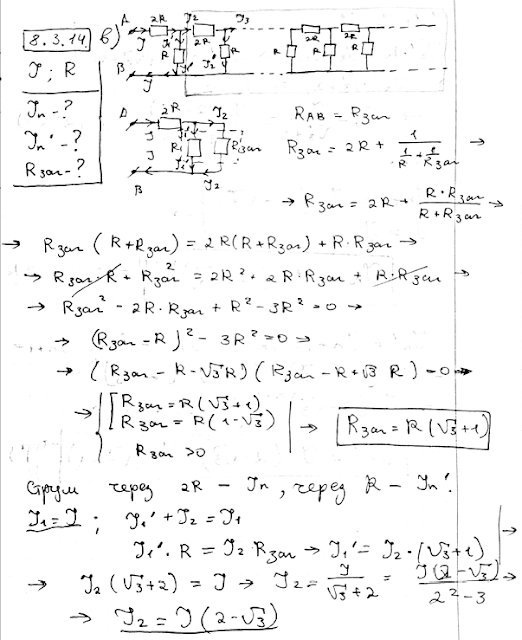 8.3.14 в) A 2R J₂ J₃ 2R 2R
J J₁' 2R R R J₂' R R R R
B J
J; R
Jₙ - ?
Jₙ' - ?
Rзаг - ?
A 2R J₂
J R J₁' Rзаг
B J₂
R_AB = Rзаг
Rзаг = 2R + 1/(1/R + 1/Rзаг) →
→ Rзаг = 2R + R·Rзаг/(R+Rзаг) →
→ Rзаг (R+Rзаг) = 2R(R+Rзаг) + R·Rзаг →
→ Rзаг·R + Rзаг² = 2R² + 2R·Rзаг + R·Rзаг →
→ Rзаг² - 2R·Rзаг + R² - 3R² = 0 →
→ (Rзаг - R)² - 3R² = 0 →
→ (Rзаг - R - √3R)(Rзаг - R + √3 R) = 0 →
→ { [ Rзаг = R(√3+1)
Rзаг = R(1-√3)
Rзаг > 0
→ Rзаг = R(√3+1)
Струм через 2R - Jₙ, через R - Jₙ'.
J₁ = J ; J₁' + J₂ = J₁
J₁'·R = J₂·Rзаг → J₁' = J₂·(√3+1) →
→ J₂(√3+2) = J → J₂ = J/(√3+2) = J(2-√3)/(2²-3) →
→ J₂ = J(2-√3)